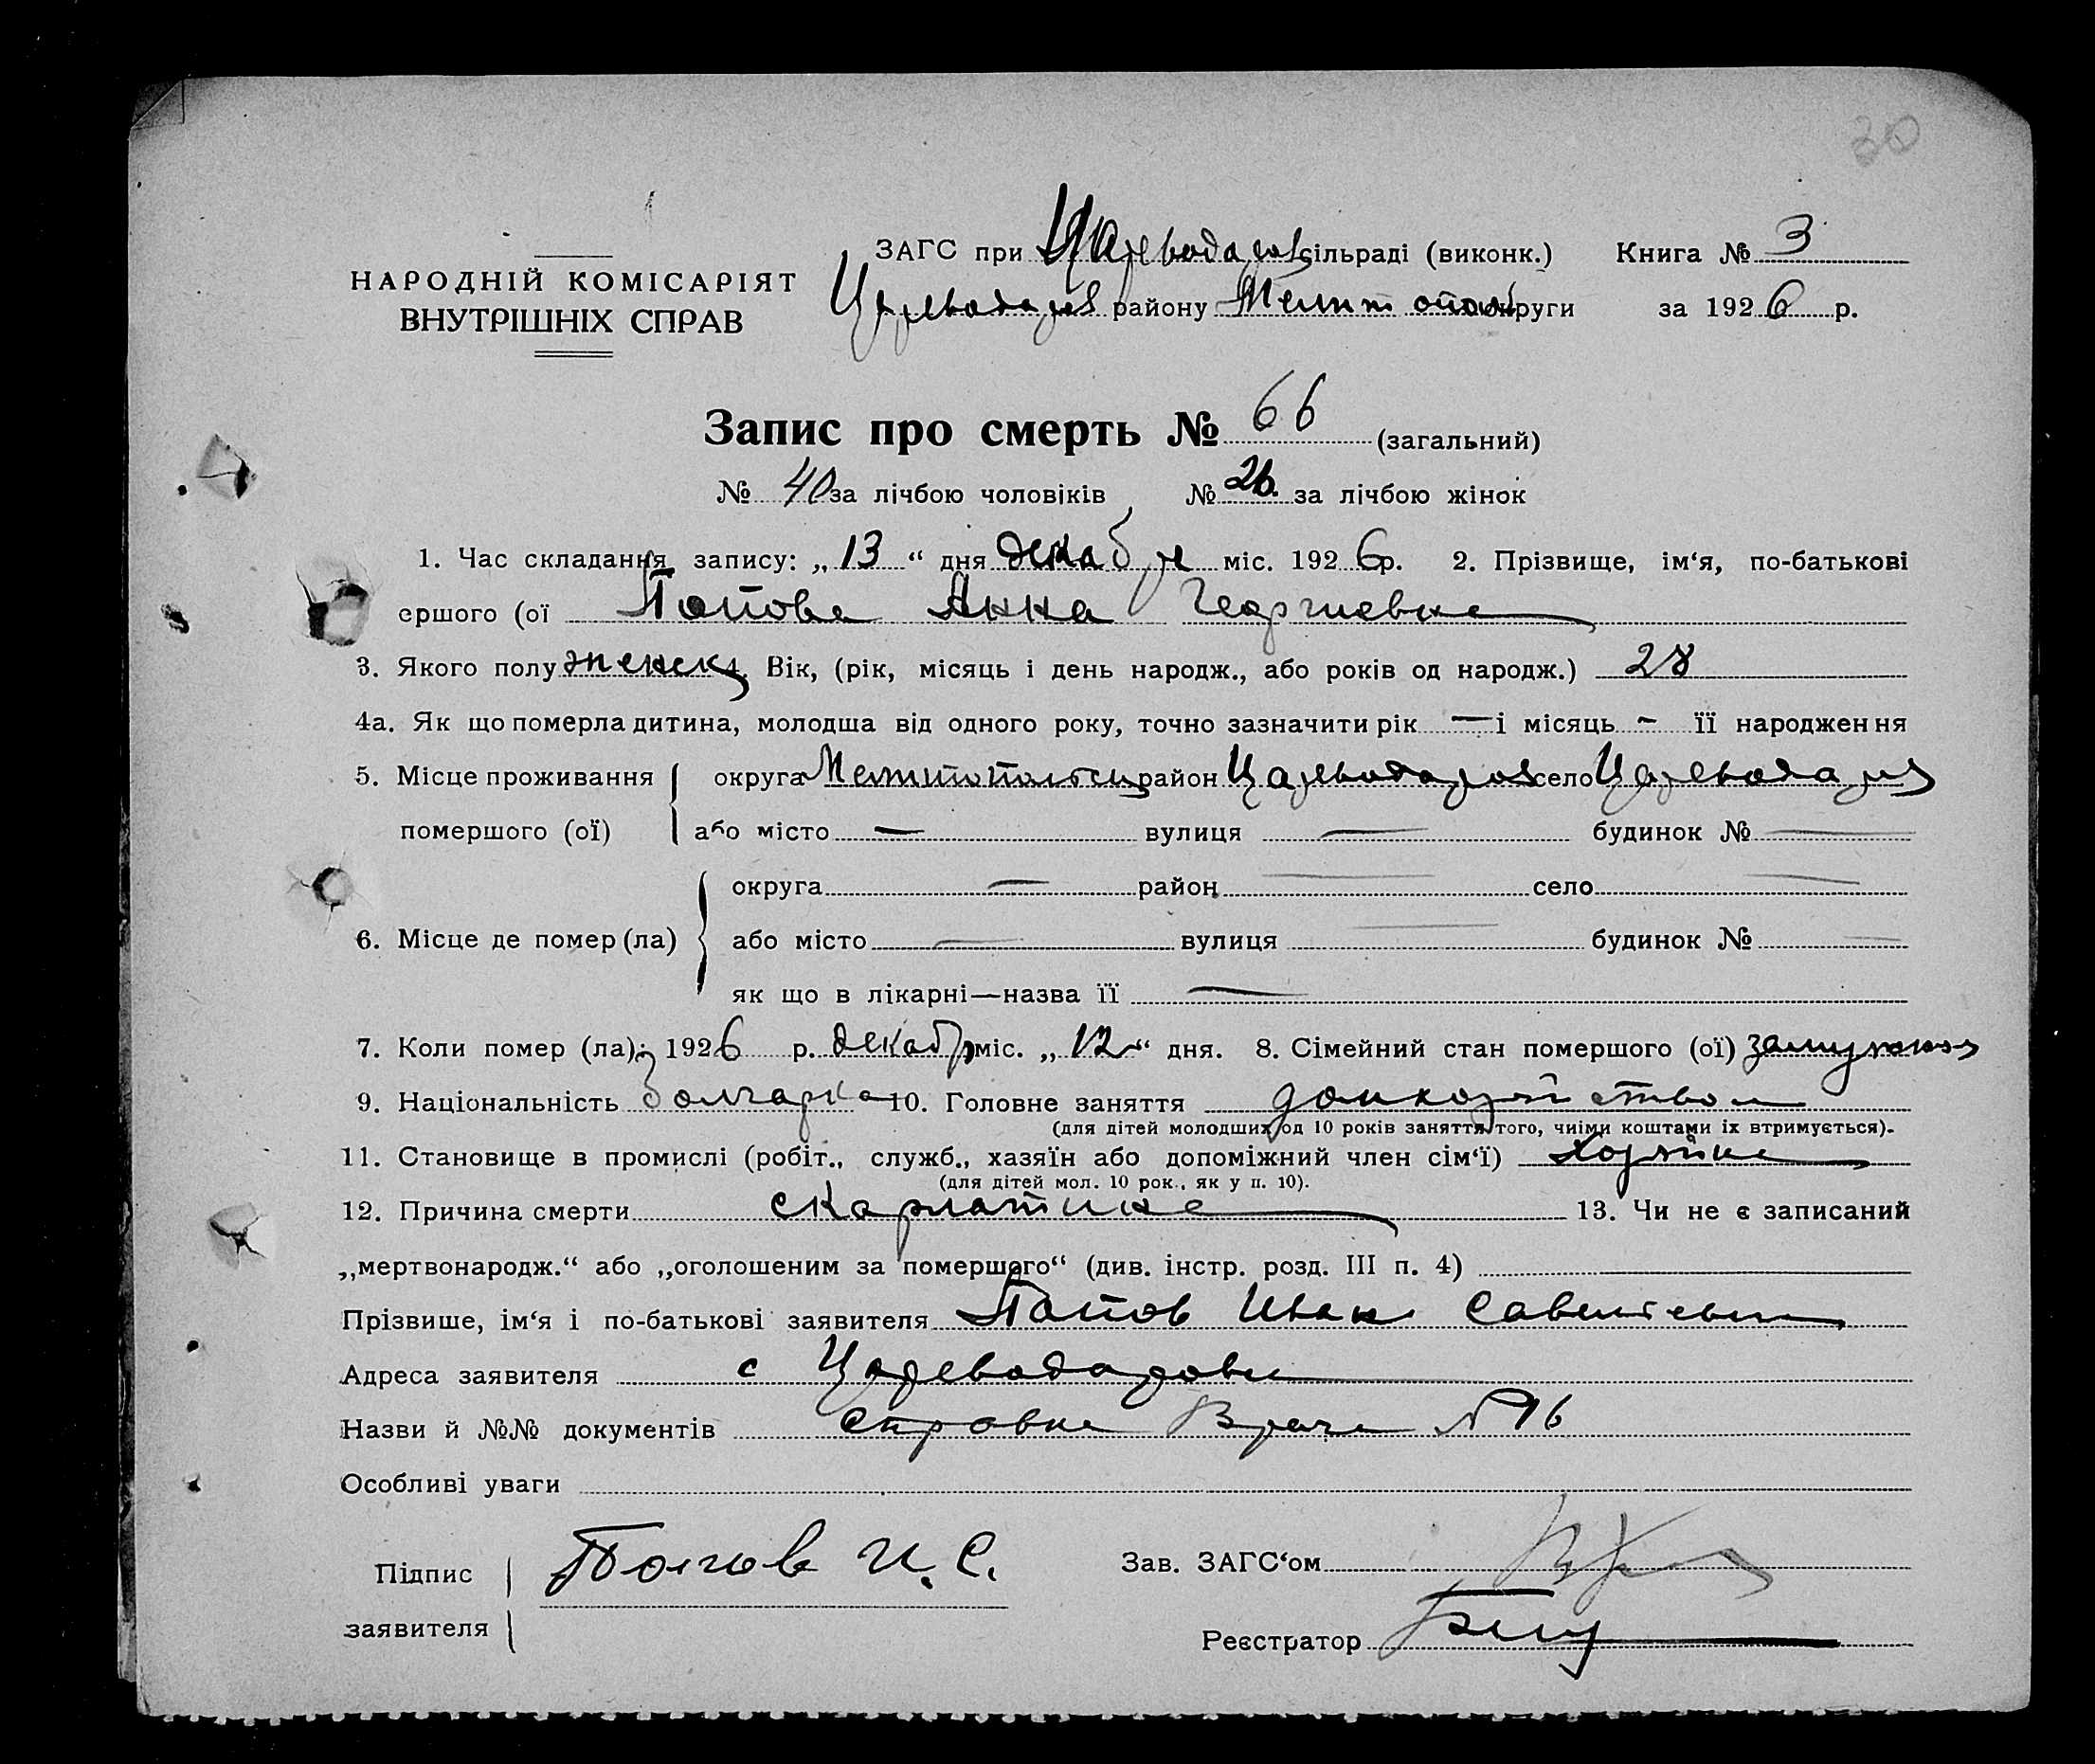 30
ЗАГС при Цареводар сільраді (виконк.) Книга № 3
НАРОДНІЙ КОМІСАРІЯТ
ВНУТРІШНІХ СПРАВ
Цареводар району Мелитопол округи за 1926 р.
Запис про смерть № 66 (загальний)
№ 40 за лічбою чоловіків № 26. за лічбою жінок
1. Час складання запису: „13“ дня декабря міс. 1926 р. 2. Прізвище, ім‘я, по-батькові
ершого (ої Попова Анна Георгиевна
3. Якого полу женск 4. Вік, (рік, місяць і день народж., або років од народж.) 28
4а. Як що померла дитина, молодша від одного року, точно зазначити рік — і місяць - її народження
5. Місце проживання округа Мелитопольск район Цареводаров село Цареводаров
помершого (ої) або місто — вулиця — будинок № —
округа — район — село —
6. Місце де помер (ла) або місто — вулиця — будинок № —
як що в лікарні—назва її —
7. Коли помер (ла): 1926 р. декабр міс. „12“ дня. 8. Сімейний стан помершого (ої) замужняя
9. Національність Болгарка 10. Головне заняття домхозяйством
(для дітей молодших од 10 років заняття того, чиїми коштами їх втримується).
11. Становище в промислі (робіт., служб., хазяїн або допоміжний член сім‘ї) Хозяйка
(для дітей мол. 10 рок., як у п. 10).
12. Причина смерти скарлатина 13. Чи не є записаний
„мертвонародж.“ або „оголошеним за помершого“ (див. інстр. розд. III п. 4)
Прізвише, ім‘я і по-батькові заявителя Попов Иван Савельевич
Адреса заявителя с Цареводаровка
Назви й №№ документів справка Врача №16
Особливі уваги
Підпис Попов И. С. Зав. ЗАГС‘ом
заявителя Реєстратор